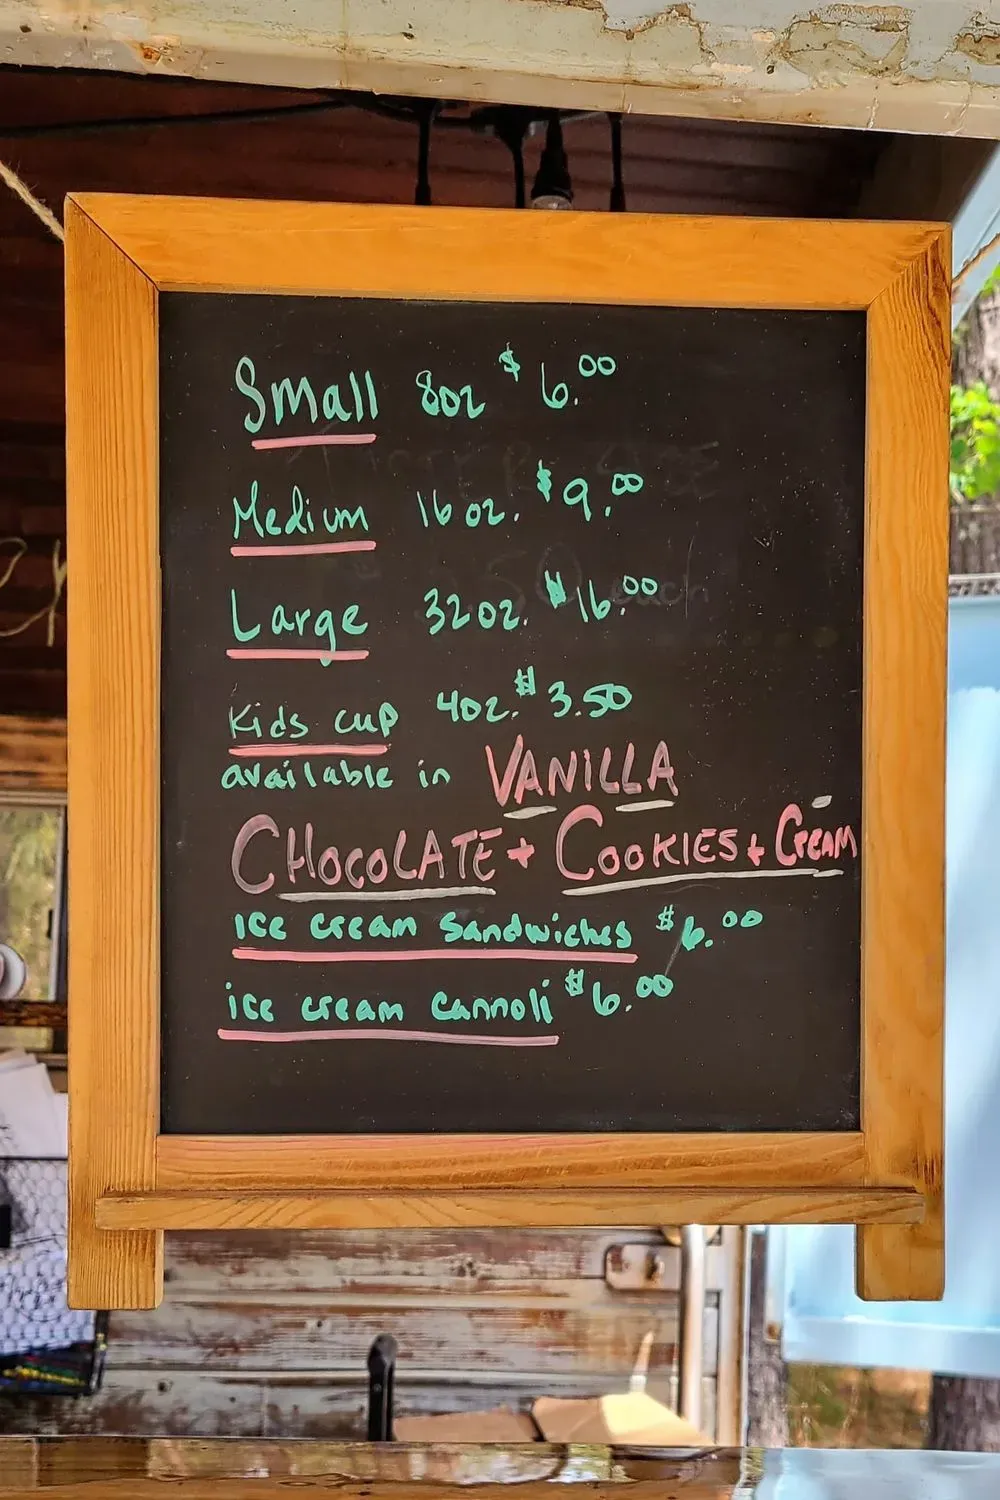 Small 8oz $6.00
Medium 16oz. $9.00
Large 32oz. $16.00
Kids cup 4oz. $3.50
available in VANILLA
CHOCOLATE + COOKIES + CREAM
ice cream Sandwiches $6.00
ice cream Cannoli $6.00